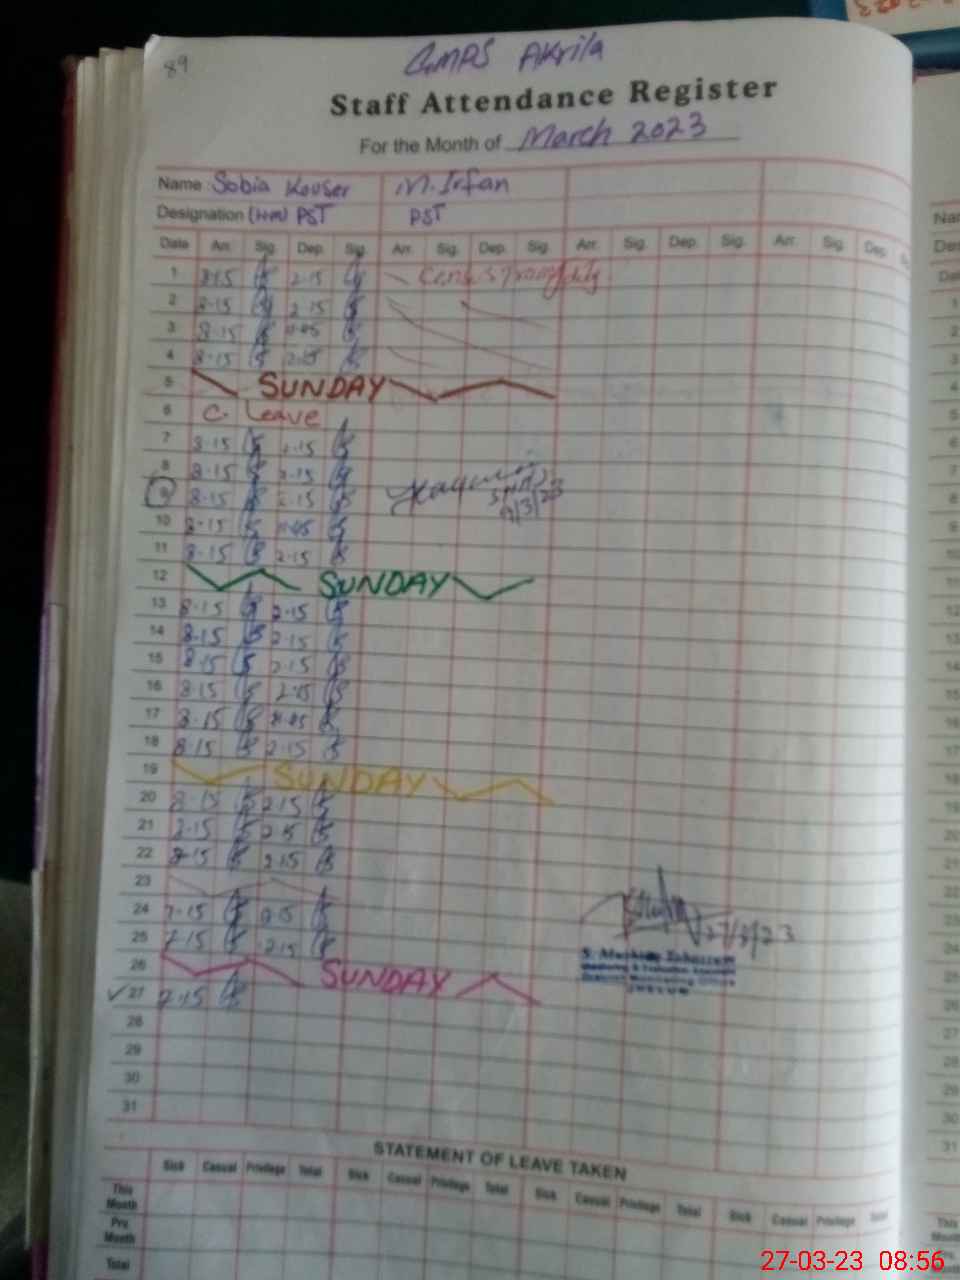 89
GMPS Akrila
Staff Attendance Register
For the Month of March 2023
Name Sobia Kouser M. Irfan
Designation (HM) PST PST
Date Arr. Sig. Dep. Sig. Arr. Sig. Dep. Sig. Arr. Sig. Dep. Sig. Arr. Sig. Dep.
1 8-15 2-15
2 8-15 2-15
3 8-15
4 8-15 2-15
5 SUNDAY
6 C. Leave
7 8-15 2-15
8 8-15 2-15
9 8-15 2-15
10 8-15
11 8-15 2-15
12 SUNDAY
13 8-15 2-15
14 8-15 2-15
15 8-15 2-15
16 8-15 2-15
17 8-15
18 8-15 2-15
19 SUNDAY
20 8-15 2-15
21 2-15
22 8-15 2-15
23
24 7-15
25 7-15 12-15
26 SUNDAY
27 7-15
28
29
30
31
27/3/23
STATEMENT OF LEAVE TAKEN
Sick Casual Privilege Total Sick Casual Privilege Total Sick Casual Privilege Total Sick Casual Privilege Total
This Month
Pre Month
Total
27-03-23 08:56